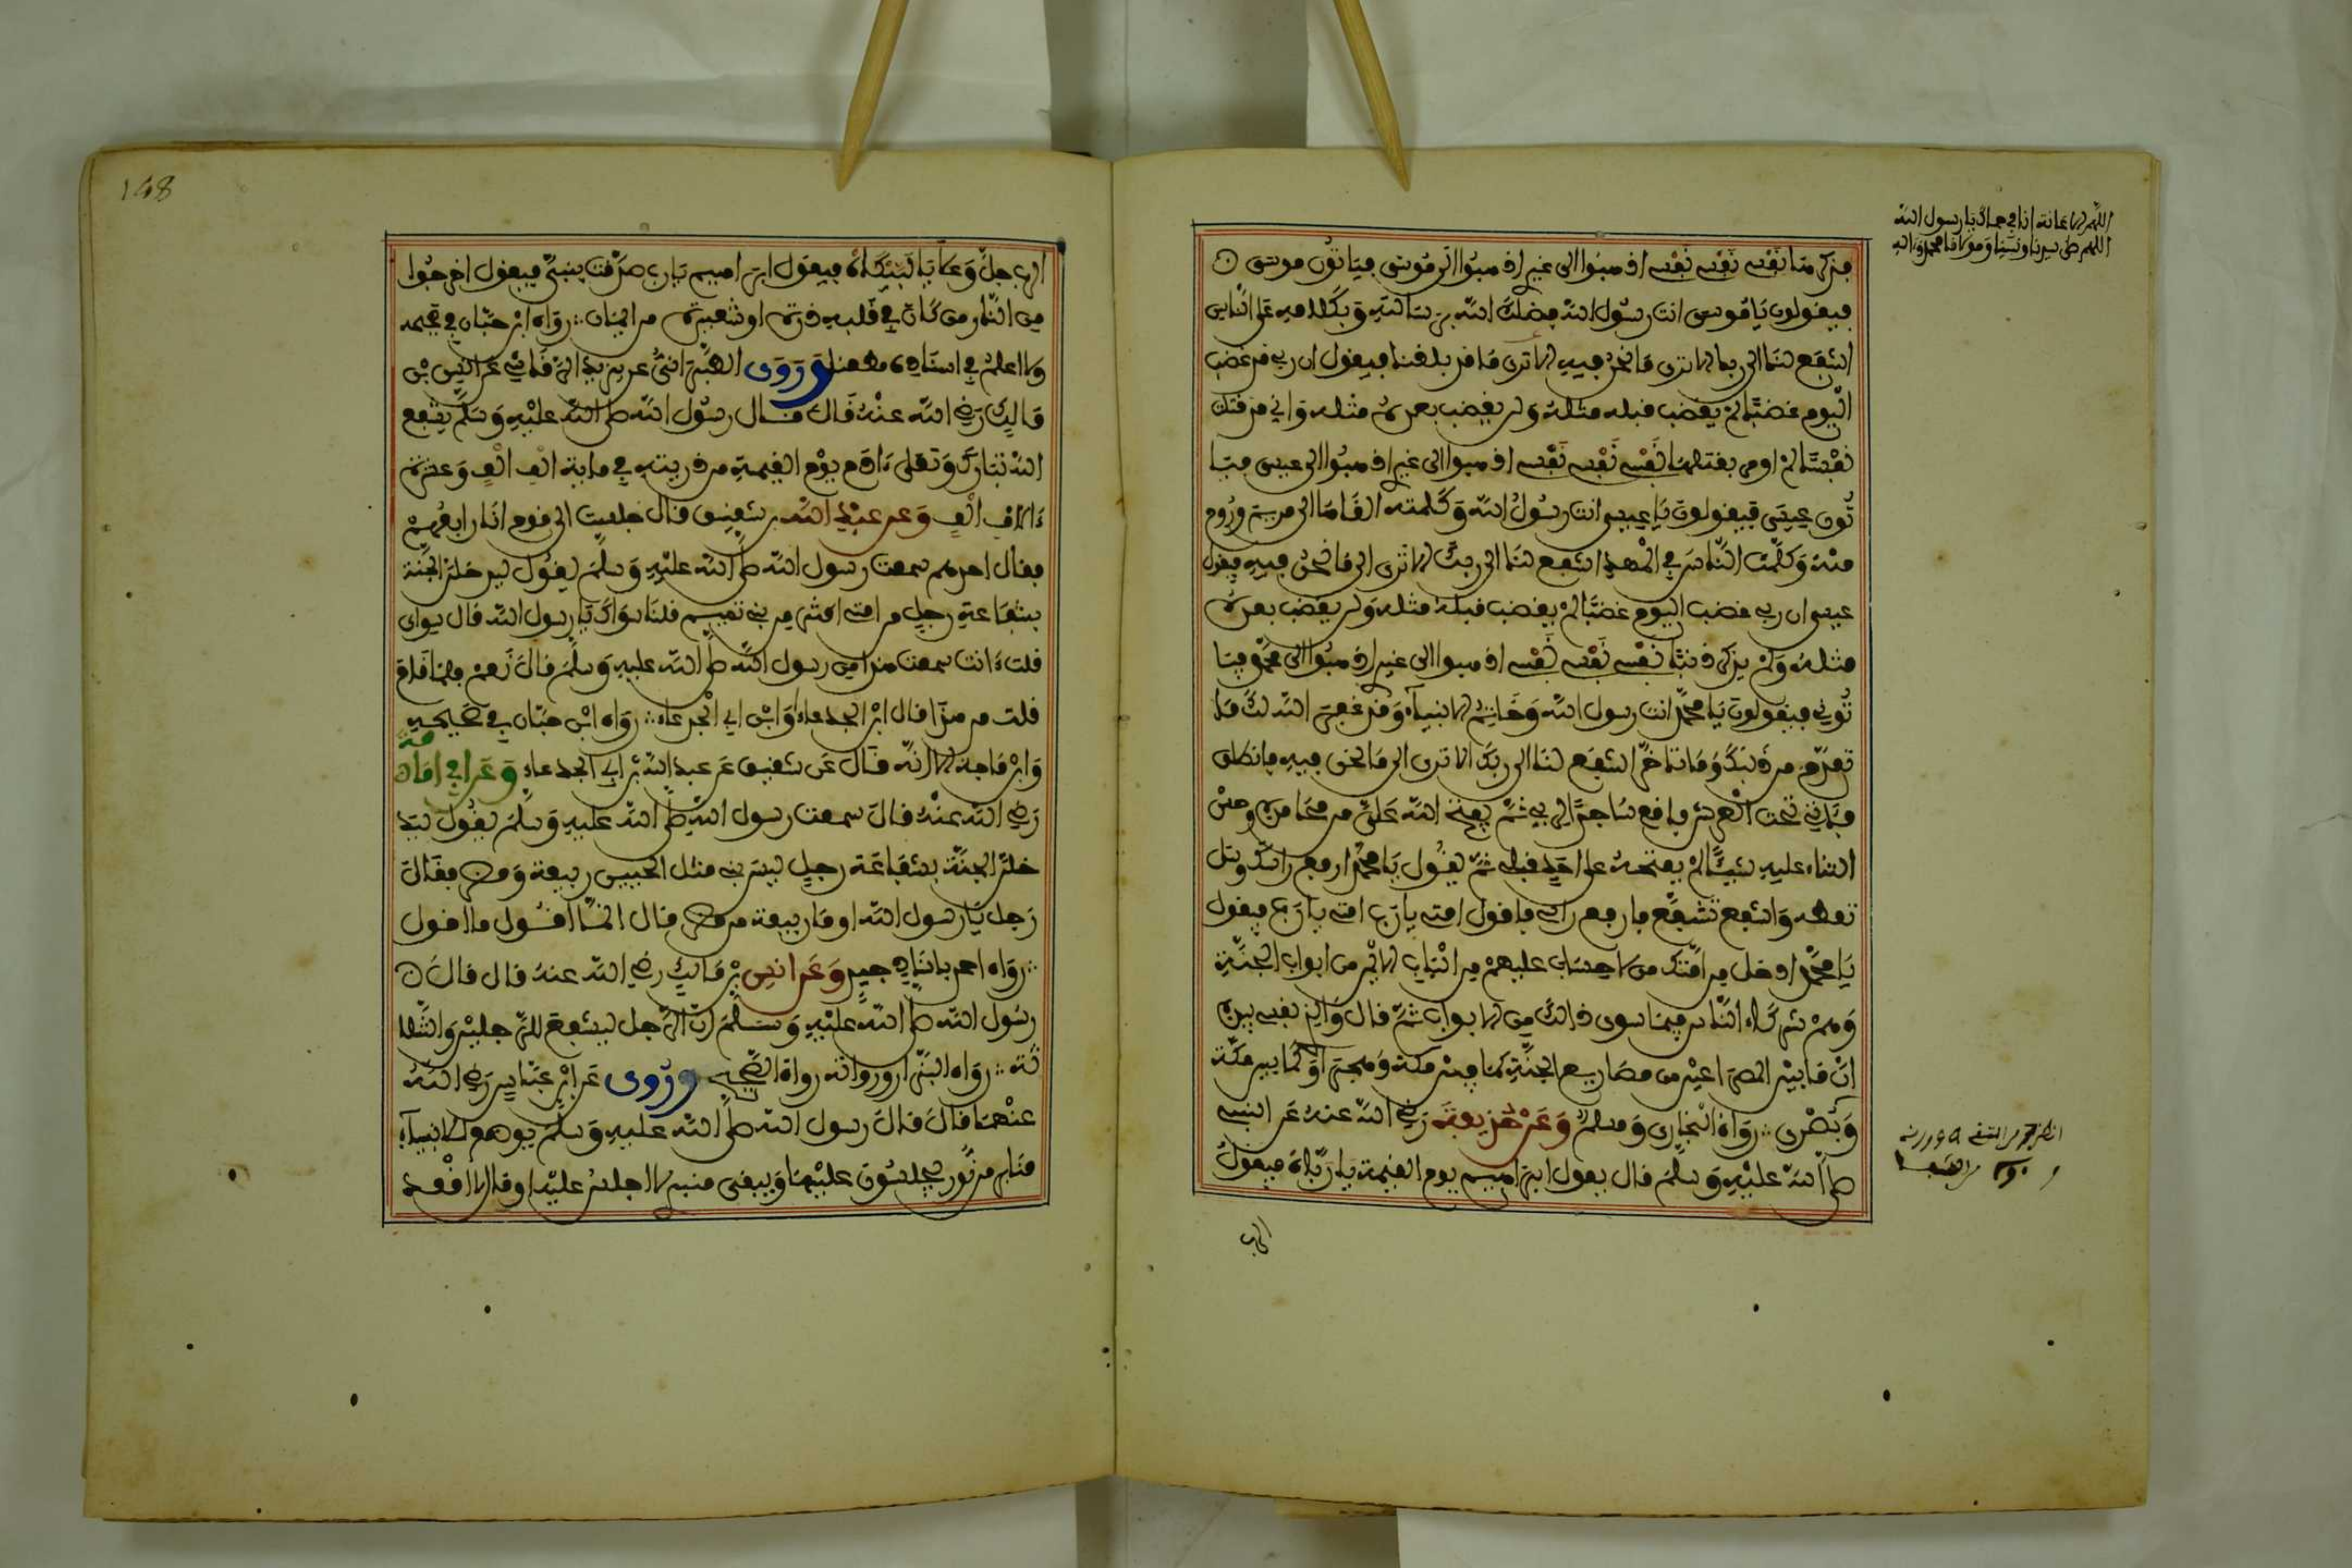 فذكرها نفسي نفسي نفسي اذهبوا الى غيري اذهبوا الى موسى فياتون موسى
فيقولون يا موسى انت رسول الله فضلك الله برسالته وبكلامه على الناس
اشفع لنا الى ربك الا ترى ما نحن فيه الا ترى ما قد بلغنا فيقول ان ربي قد غضب
اليوم غضبا لم يغضب قبله مثله ولن يغضب بعده مثله واني قد قتلت
نفسا لم اومر بقتلها نفسي نفسي نفسي اذهبوا الى غيري اذهبوا الى عيسى فيا
تون عيسى فيقولون يا عيسى انت رسول الله وكلمته القاها الى مريم وروح
منه وكلمت الناس في المهد اشفع لنا الى ربك الا ترى الى ما نحن فيه فيقول
عيسى ان ربي غضب اليوم غضبا لم يغضب قبله مثله ولن يغضب بعده
مثله ولم يذكر ذنبا نفسي نفسي نفسي اذهبوا الى غيري اذهبوا الى محمد فيا
توني فيقولون يا محمد انت رسول الله وخاتم الانبياء وقد غفر الله لك ما
تقدم من ذنبك وما تاخر اشفع لنا الى ربك الا ترى الى ما نحن فيه فانطلق
فئاتي تحت العرش فاقع ساجدا لربي ثم يفتح الله علي من محامده وحسن
الثناء عليه شيئا لم يفتحه على احد قبلي ثم يقول يا محمد ارفع راسك وسل
تعطه واشفع تشفع فارفع راسي فاقول امتي يا رب امتي يا رب فيقول
يا محمد ادخل من امتك من لا حساب عليهم من الباب الايمن من ابواب الجنة
وهم شركاء الناس فيما سوى ذلك من الابواب ثم قال والذي نفسي بيده
ان ما بين المصراعين من مصاريع الجنة كما بين مكة وهجر او كما بين مكة
وبصرى رواه البخاري ومسلم وعن حذيفة رضي الله عنه عن النبي
صلى الله عليه وسلم قال يقول ابراهيم يوم القيمة يا رباه فيقول
الرب
اللهم صل على سيدنا ونبينا ومولانا محمد وءاله
الرب جل وعلا يا لبيكاه فيقول ابراهيم يا رب حرقت بني فيقول اخرجوا
من النار من كان في قلبه ذرة او شعيرة من ايمان رواه ابن حبان في صحيحه
ولا اعلم في اسناده مطعنا وروى الطبراني عن يزيد الرقاشي عن انس بن
مالك رضي الله عنه قال قال رسول الله صلى الله عليه وسلم يشفع
الله تبارك وتعلى ءادم يوم القيمة من ذريته في ماية الف الف وعشرة
ءالاف الف وعن عبد الله بن شقيق قال جلست الى قوم انا رابعهم
فقال احدهم سمعت رسول الله صلى الله عليه وسلم يقول ليدخلن الجنة
بشفاعة رجل من امتي اكثر من بني تميم قلنا سواك يا رسول الله قال سواي
قلت ءانت سمعت هذا من رسول الله صلى الله عليه وسلم قال نعم فلما قام
قلت من هذا قال ابن الجدعاء او ابن ابي الجدعاء رواه ابن حبان في صحيحه
وابن ماجه الا انه قال عن شقيق عن عبد الله بن ابي الجدعاء وعن ابي امامة
رضي الله عنه قال سمعت رسول الله صلى الله عليه وسلم يقول ليد
خلن الجنة بشفاعة رجل ليس بنبي مثل الحيين ربيعة ومضر فقال
رجل يا رسول الله او ما ربيعة من مضر قال انما اقول ما اقول
رواه احمد باسناد جيد وعن انس بن مالك رضي الله عنه قال قال
رسول الله صلى الله عليه وسلم ان الرجل ليشفع للرجلين والثلا
ثة رواه البزار ورواته رواة الصحيح وروى عن ابن عباس رضي الله
عنهما قال قال رسول الله صلى الله عليه وسلم يوضع للانبياء
منابر من نور يجلسون عليها ويبقى منبري لا اجلس عليه او قال لا اقعد
148